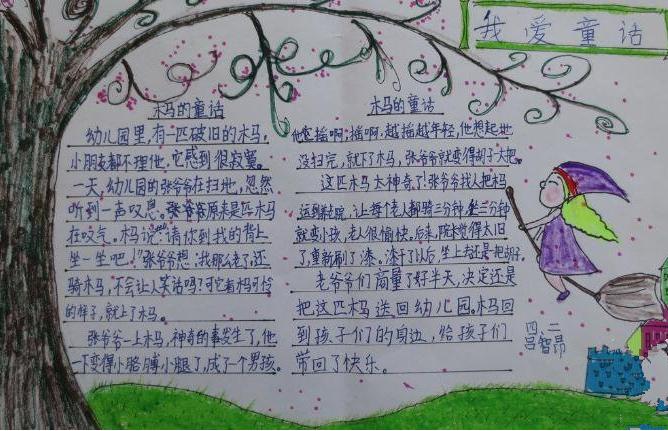 我爱童话
木马的童话
幼儿园里,有一匹破旧的木马,
小朋友都不理他,它感到很寂寞。
一天,幼儿园的张爷爷在扫地,忽然
听到一声叹息。张爷爷原来是匹木马
在叹气。木马说:"请你到我的背上
坐一坐吧!"张爷爷想:我那么老了,还
骑木马,不会让人笑话吗?可它看木马可怜
的样子,就上了木马。
张爷爷一上木马,神奇的事发生了,他
一下变得小胳膊小腿了,成了一个男孩。
木马的童话
他摇啊,摇啊,越摇越年轻,他想起地
没扫完,就下了木马,张爷爷就变得胡子大把。
这匹木马太神奇了!张爷爷找人把木马
运到院,让每个老人都骑三分钟,坐三分钟
就变小孩,老人很愉快。后来,院长觉得太旧
了,重新刷了漆,漆干了以后,坐上去还是把胡子。
老爷爷们商量了好半天,决定还是
把这匹木马送回幼儿园。木马回
到孩子们的身边,给孩子们
带回了快乐。
四、二
吕智昂